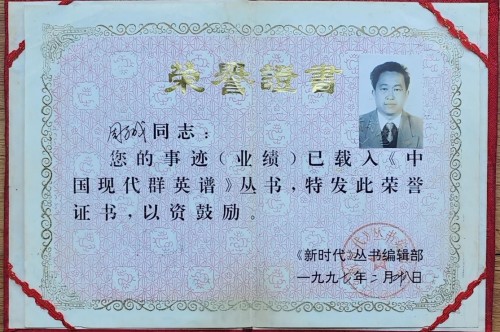 荣誉證書
同志：
您的事迹（业绩）已载入《中
国现代群英谱》丛书，特发此荣誉
证书，以资鼓励。
《新时代》丛书编辑部
一九九七年二月 日